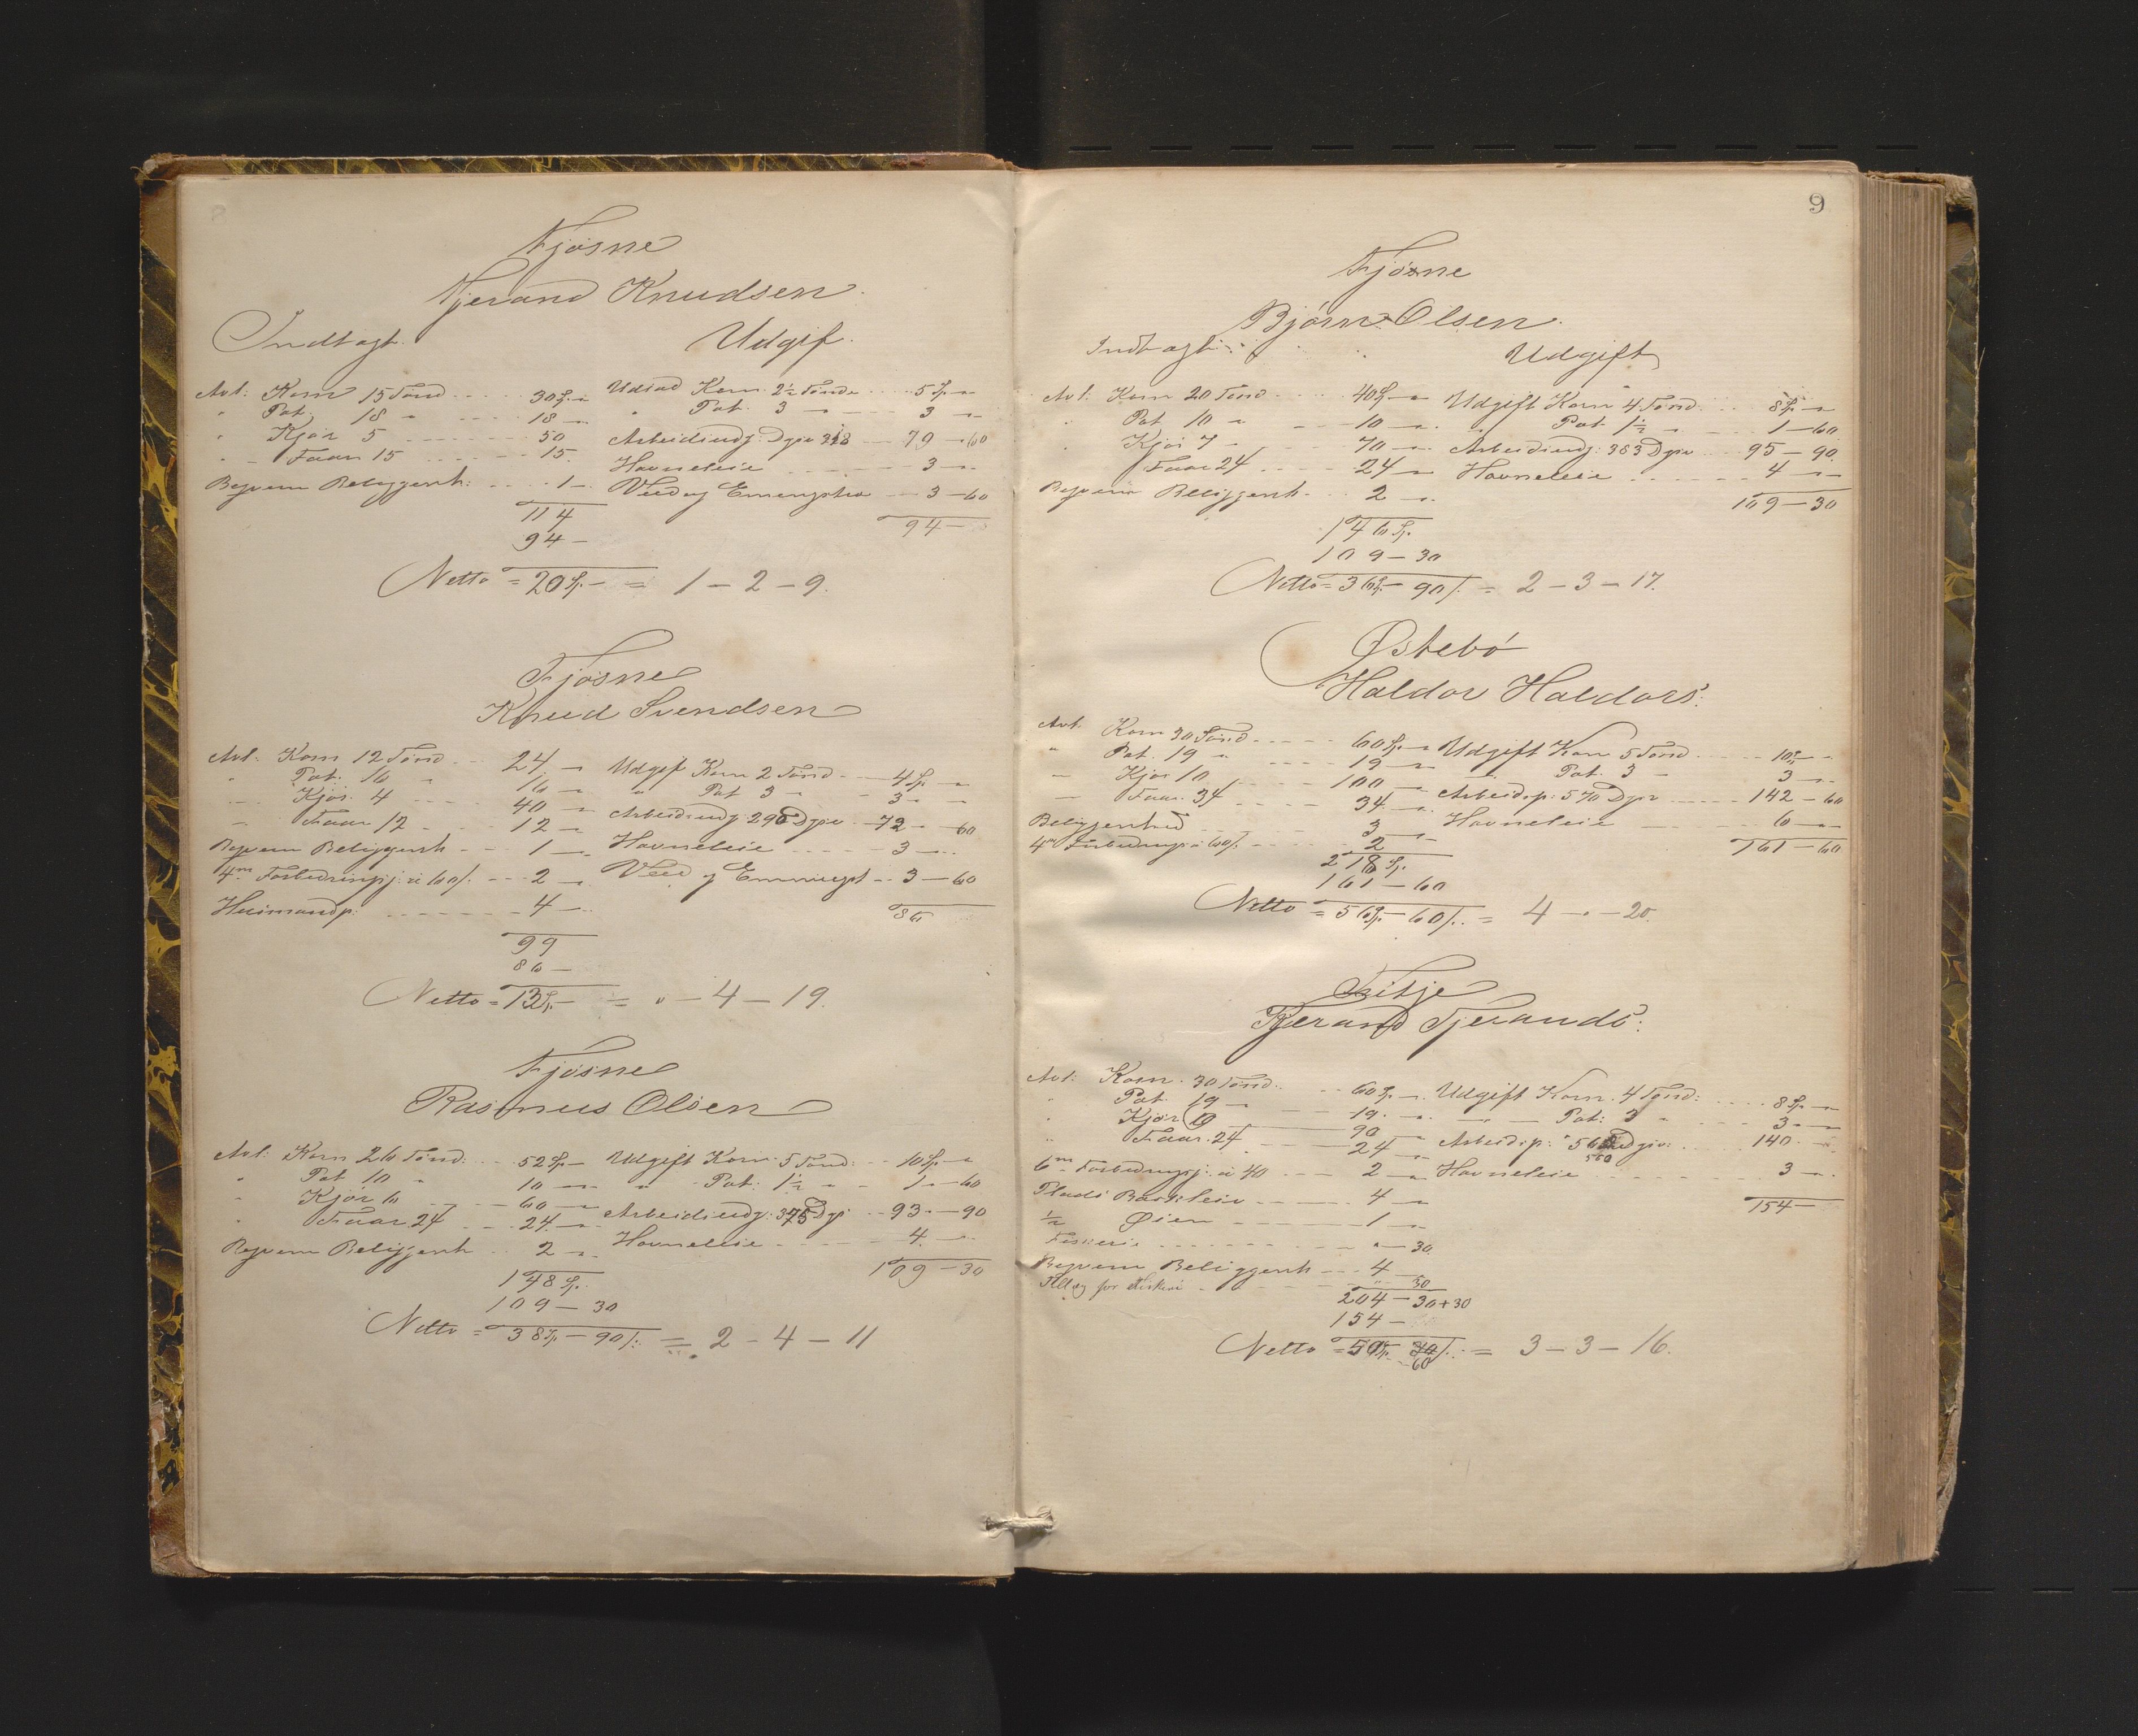 Fjøsne
Tjerand Knudsen
Indtægt. Udgif.
Avl: Korn 15 Tønd 30 Sp. - " Udsæd Korn 2½ Tønde 5 Sp. - "
" Pot. 18 " 18 - " " Pot. 3 " 3 - "
" Kjör 5 50 Arbeidsudg: Dgsv 318 79 - 60
" Faar 15 15. Havneleie 3 - "
Beqvem Beliggenh: 1 - Veed og 3 - 60
114 94 -
94 -
Netto = 20 Sp. - = 1 - 2 - 9.
Fjøsne
Knud Svendsen
Avl: Korn 12 Tønd 24 - " Udgif Korn 2 Tønd 4 Sp. - "
" Pot. 16 " 16 - " " Pot 3 " 3 - "
" Kjör. 4 40 - " Arbeidsudg 290 Dgsv 72 - 60
" Faar 12 12 - Havneleie 3 - "
Beqvem Beliggenh 1 - Veed og 3 - 60
4m Forbedringsj: à 60/. 2 - 86
Husmandsp: 4 -
99
86 -
Netto = 13 Sp. - = " - 4 - 19.
Fjøsne
Rasmus Olsen
Avl: Korn 26 Tønd: 52 Sp. - Udgift Korn 5 Tønd: 10 Sp. - "
" Pot 10 " 10 - " " Pot: 1½ " 1 - 60
" Kjör 6 60 - " Arbeidsudg: 375 Dgs 93 - 90
" Faar 24 24 - " Havneleie 4 - "
Beqvem Beliggenh 2 - " 109 - 30
148 Sp.
109 - 30
Netto = 38 Sp. - 90/. = 2 - 4 - 11
9
Fjøsne
Bjørn Olsen.
Indtægt: Udgift
Avl: Korn 20 Tønd 40 Sp. - " Udgift Korn 4 Tønd 8 Sp. - "
" Pot 10 " 10 - " " Pot. 1½ " 1 - 60
" Kjör 7 " 70 - " Arbeidsudg: 383 Dgsv 95 - 90
Faar 24 24 - " Havneleie 4 - "
Beqvem Beliggenh 2 - " 109 - 30
146 Sp.
109 - 30
Netto = 36 Sp. - 90/. = 2 - 3 - 17.
Østebø
Haldor Haldors:
Avl. Korn 30 Tønd 60 Sp. - " Udgift Korn 5 Tønd 10 Sp. - "
" Pot. 19 " 19 - " " Pot. 3 " 3 - "
" Kjör 10 100 - " Arbeidsp: 570 Dgsv 142 - 60
" Faar. 34 34 - " Havneleie 6 - "
Beliggenhed 3 - " 161 - 60
4m Forbedringsj à 60/. 2
218 Sp.
161 - 60
Netto = 56 Sp. - 60/. = 4 - " - 20.
Fitje
Tjerand Tjerands:
Avl: Korn. 30 Tønd: 60 Sp. - Udgift Korn. 4 Tønd: 8 Sp. - "
" Pot. 19 " 19 - " " Pot: 3 " 3 - "
" Kjör 9 90 - " Arbeidsp: 560 Dgsv: 140 - "
560
" Faar. 24 24 - " Havneleie 3 - "
6m Forbedringsj. à 40 2 - 154 -
Plads 4 - "
½ Øien 1 - "
Fiskeri " - 30
Beqvem Beliggenh 4
Tillæg for Fiskeri " 30
204 - 30 + 30
154 -
Netto = 50 Sp. 60/. = 3 - 3 - 16.